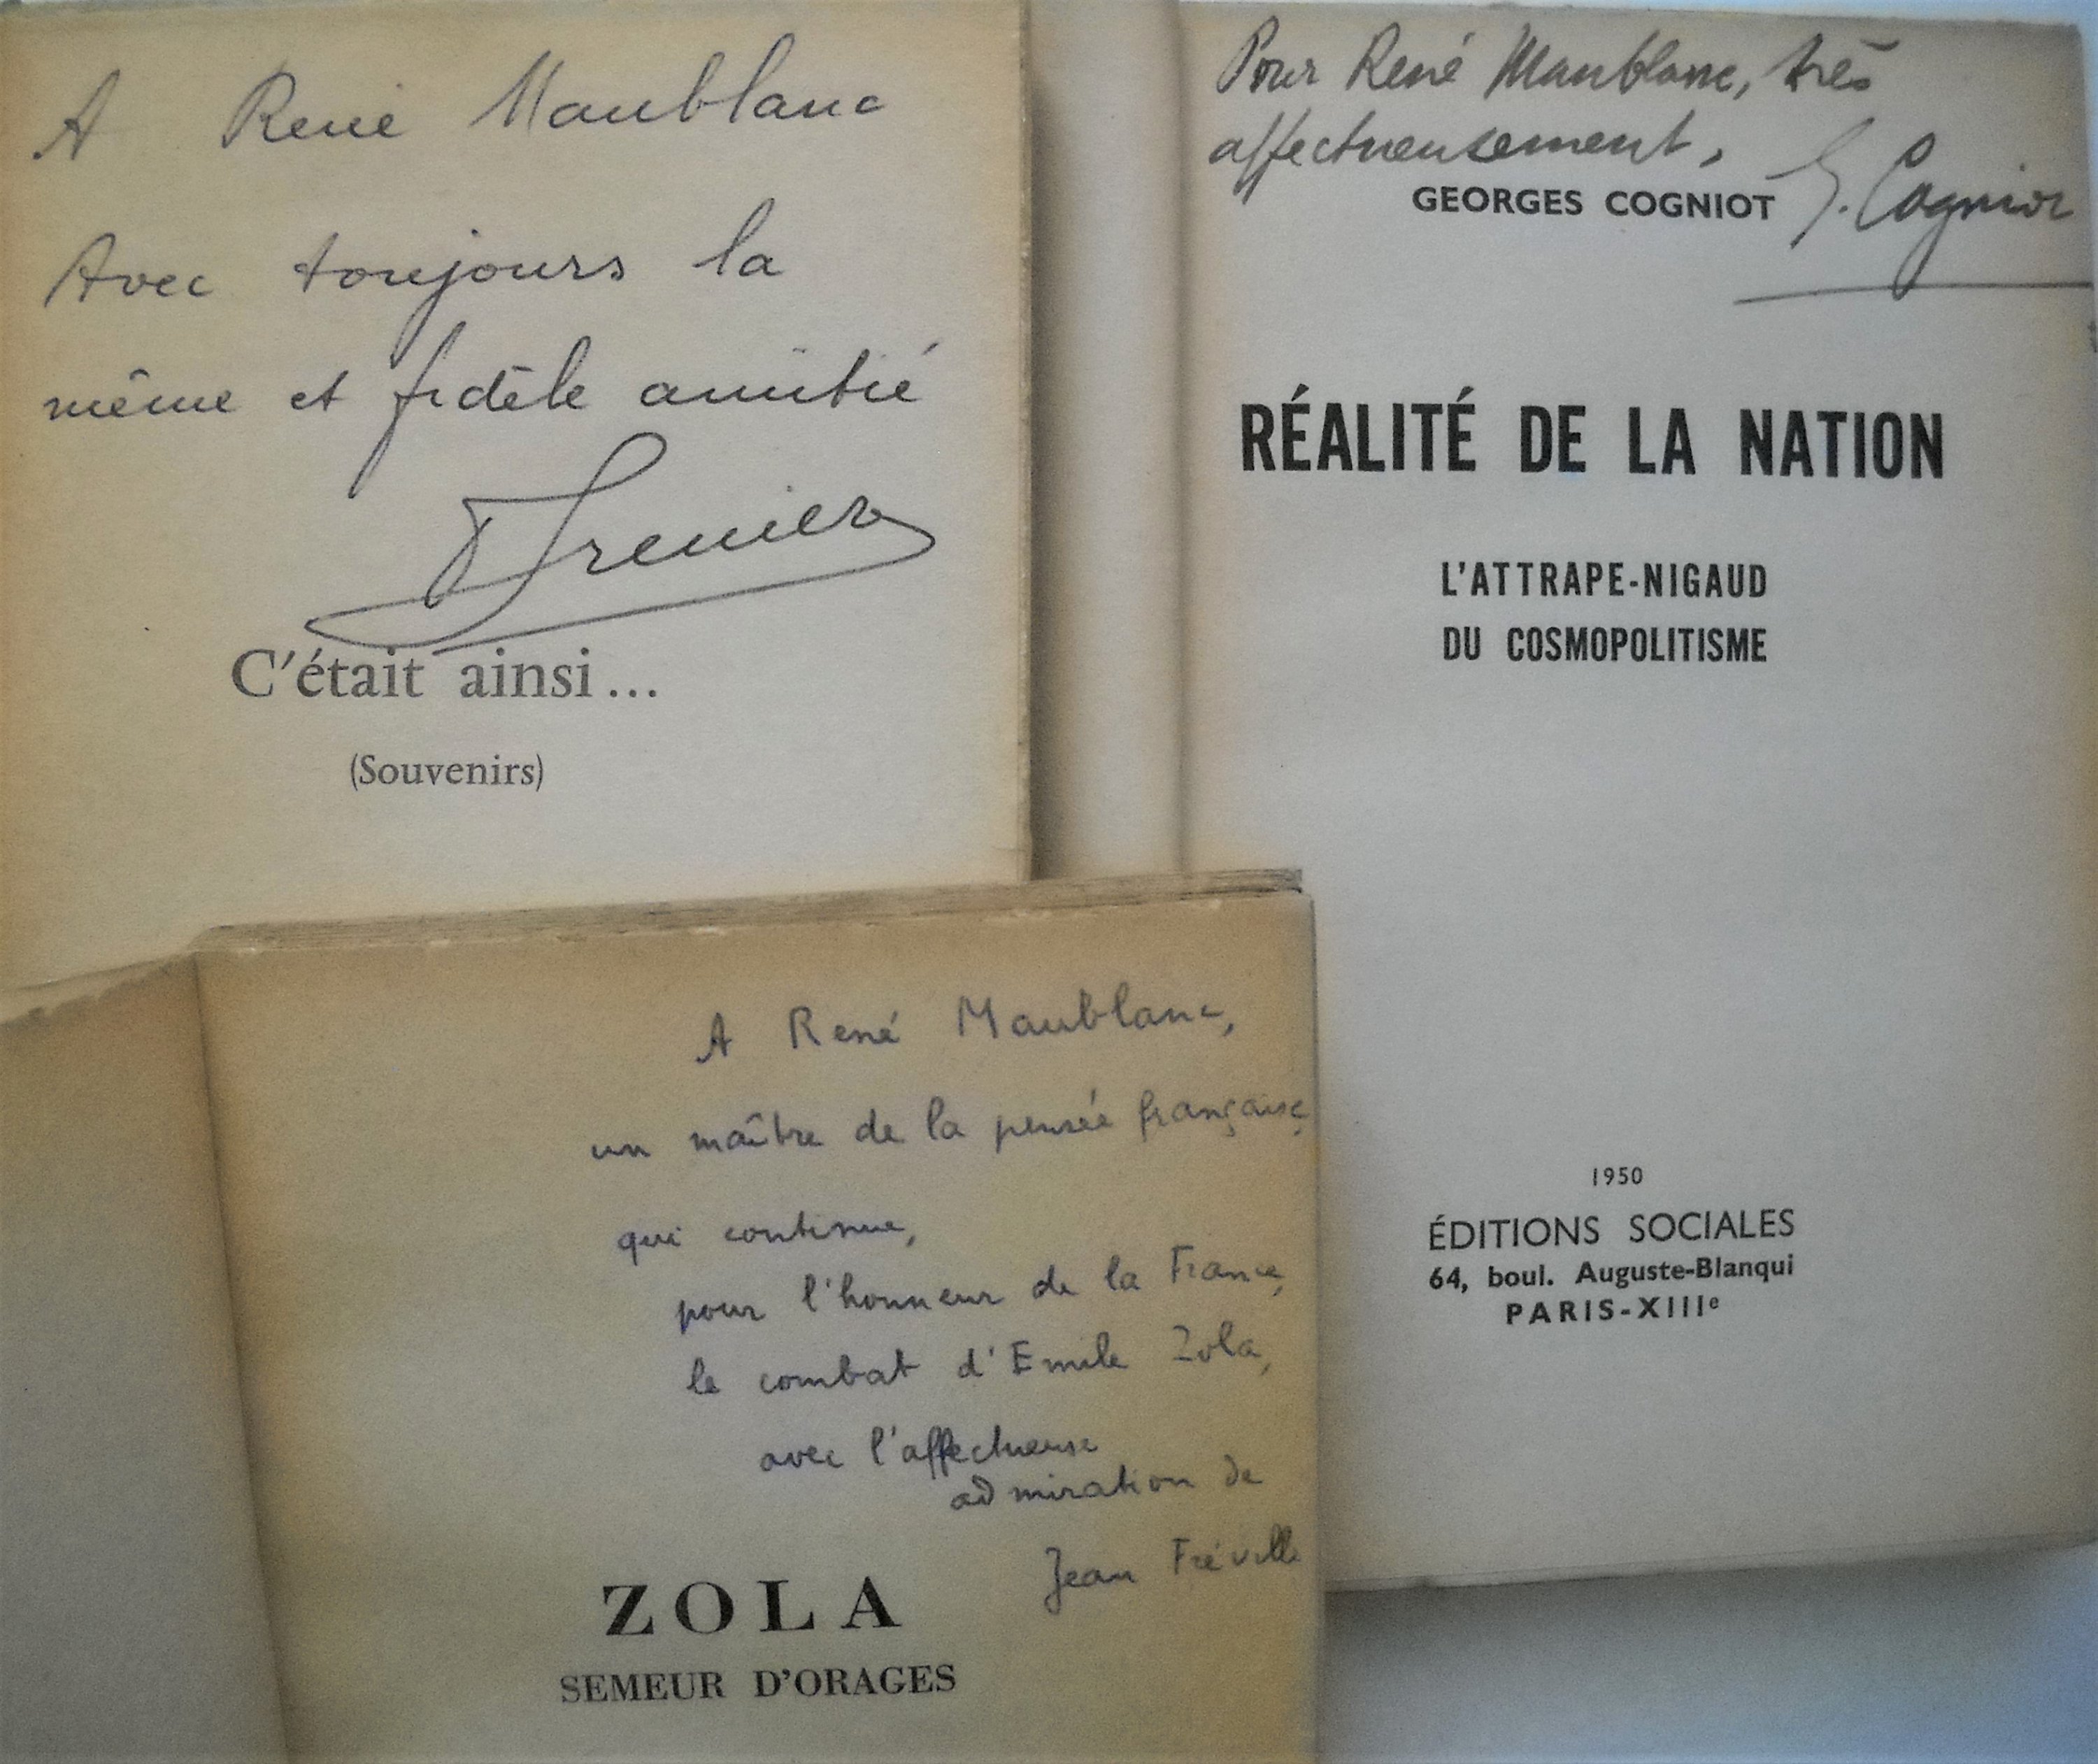 A René Maublanc
Avec toujours la
même et fidèle amitié
FGrenier
C'était ainsi...
(Souvenirs)
Pour René Maublanc, très
affectueusement,
GEORGES COGNIOT
G. Cogniot
RÉALITÉ DE LA NATION
L'ATTRAPE-NIGAUD
DU COSMOPOLITISME
1950
ÉDITIONS SOCIALES
64, boul. Auguste-Blanqui
PARIS-XIIIe
A René Maublanc,
un maître de la pensée française
qui continue,
pour l'honneur de la France,
le combat d'Emile Zola,
avec l'affectueuse
admiration de
Jean Fréville
ZOLA
SEMEUR D'ORAGES